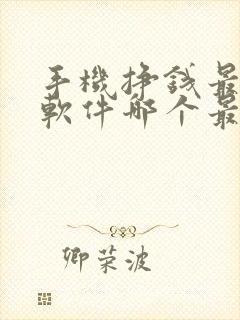 手機挣錢最
軟件哪个最
卿荣波